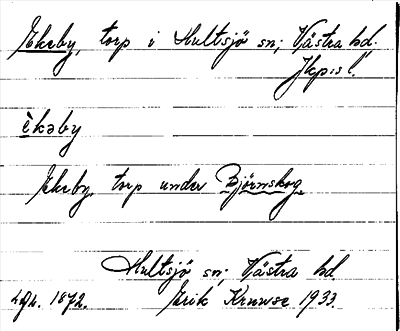 Ekeby, torp i Hultsjö sn; Västra hd.
Jkp:s l.
èkəby
Ekeby, torp under Björnskog.
Hultsjö sn; Västra hd
1872. Erik Kruuse 1933.